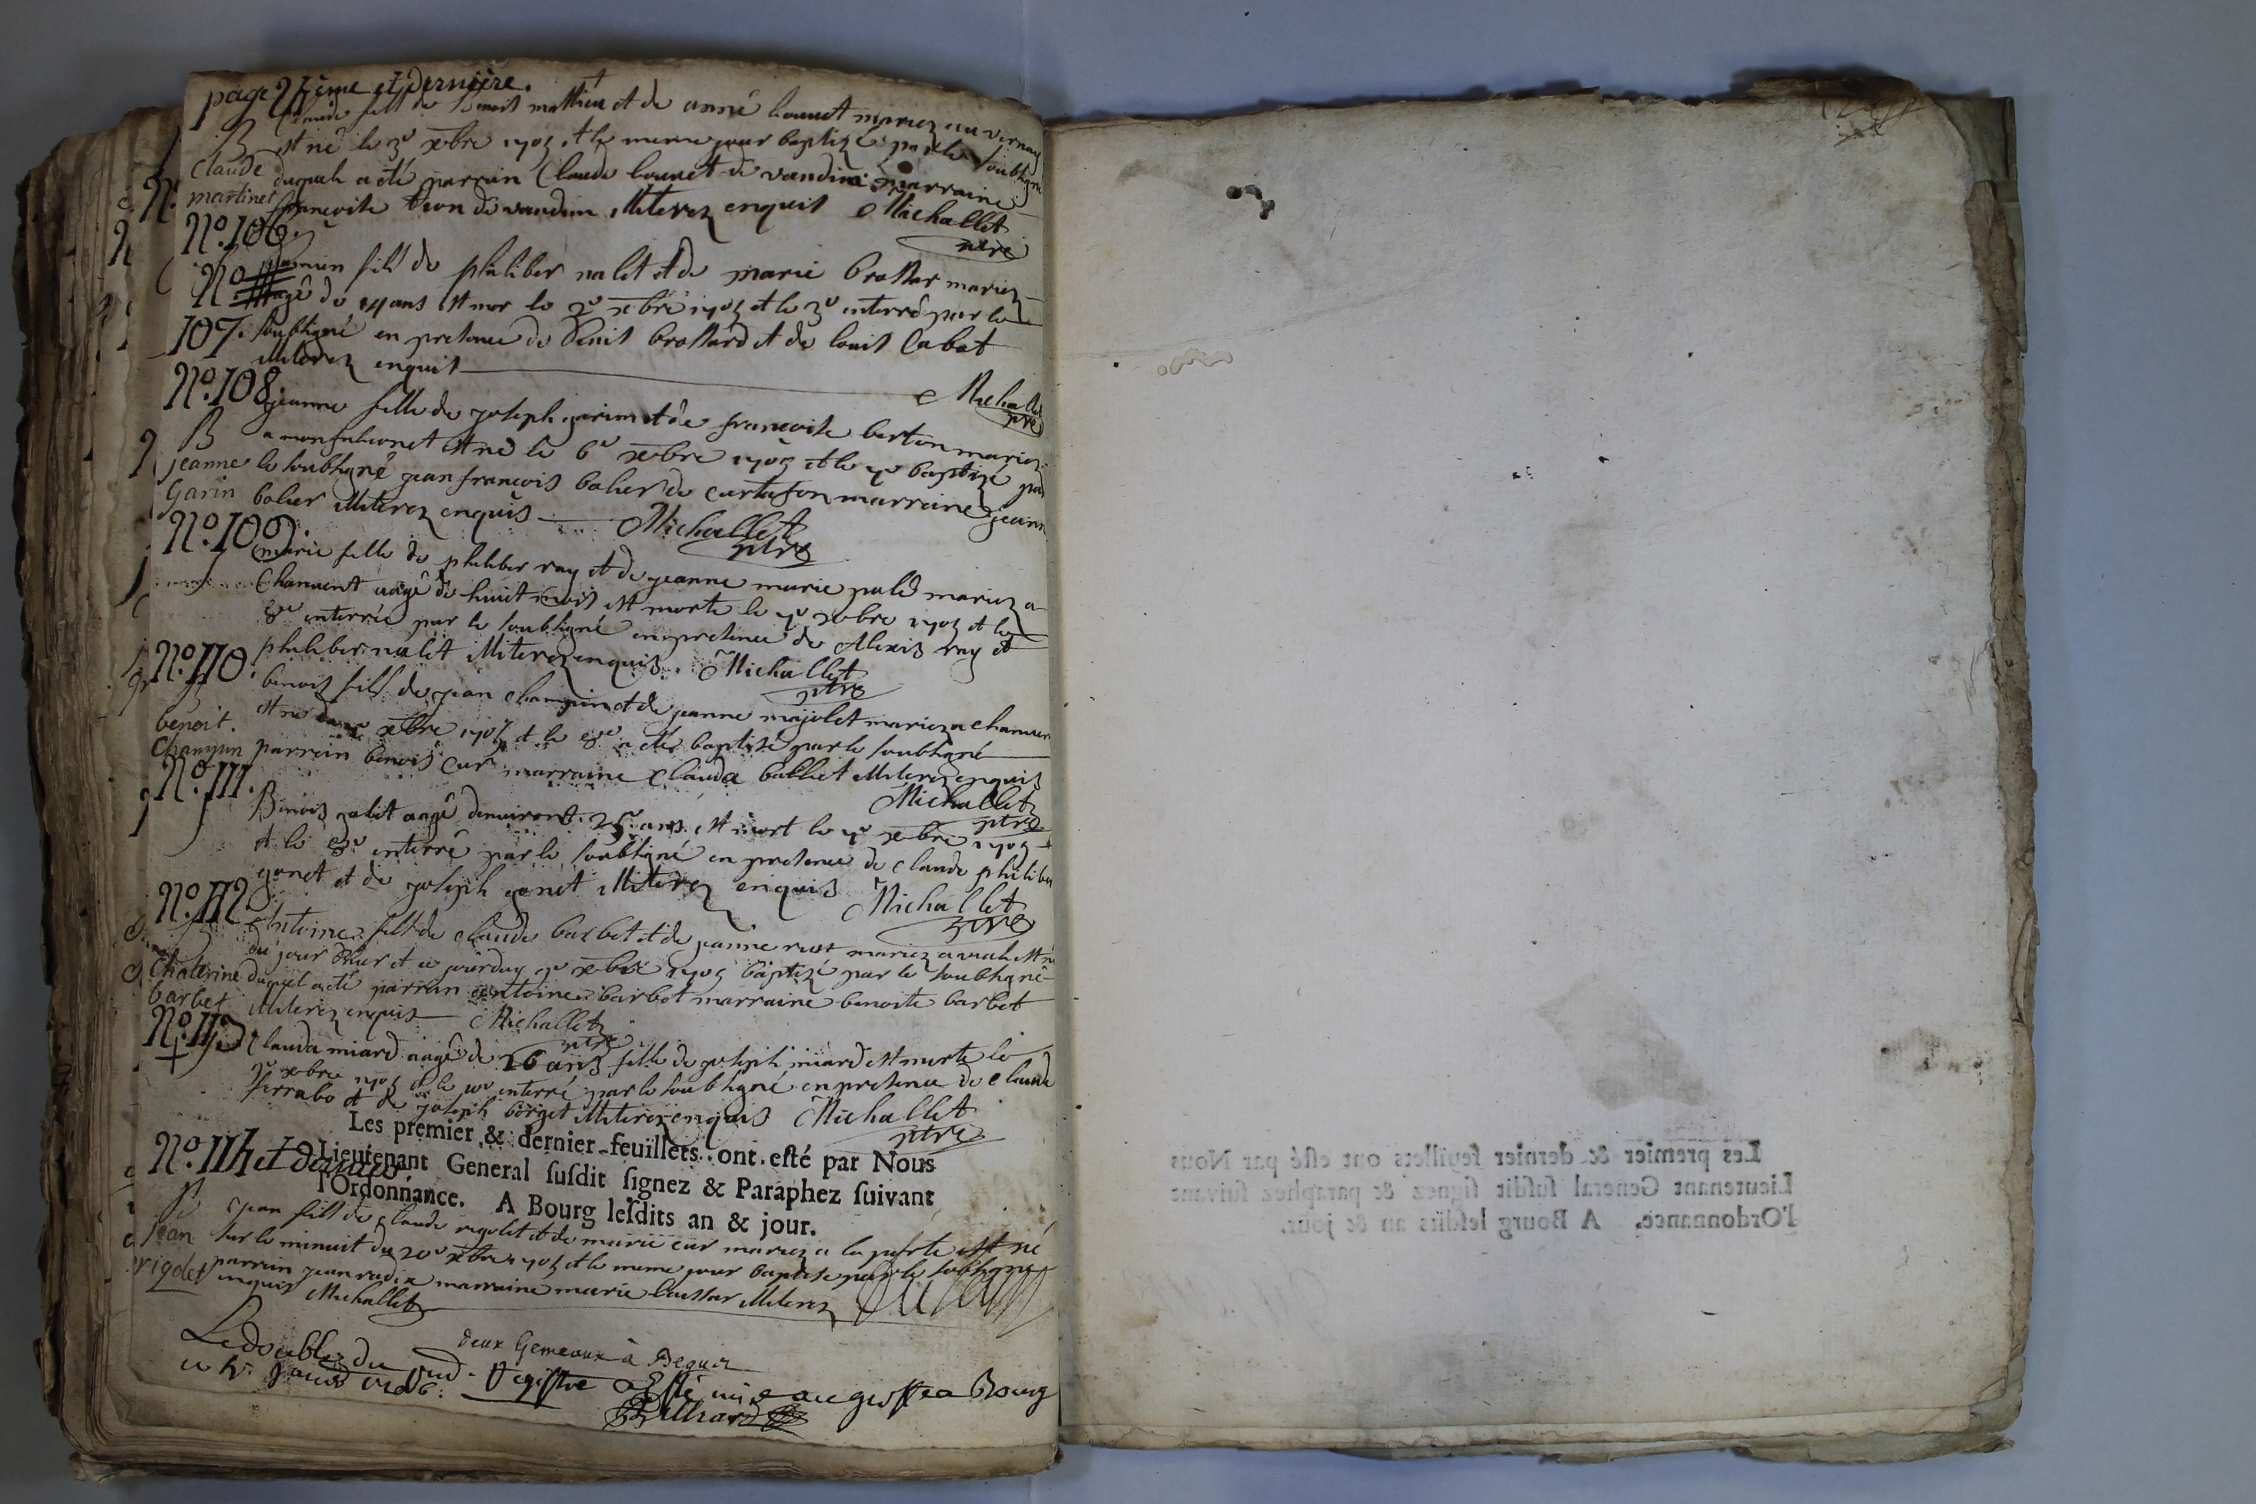 page 24ème et dernière.
Claude fils de benoit mathieu et de anne louuet mariez au vernay
B est né le 3e xbre 1705 et le meme jour baptizé par le soubsigné
Claude duquel a eté parrain Claude louuet de vandin marraine
martinet francoise de vandin illiterez enquis Michallet
ptre
No. 106.
fils de philiber nalet et de marie brossar mariez
No agé de 14 ans est mor le 2e xbre 1705 et le 3e interré par le
107. soubsigné en presence de Denis brossard et de louis Cabat
illiterez enquis Michallet
ptre
No. 108
jeanne fille de joseph garin et de francoise berton mariez
B a monfalconet est née le 6e xbre 1705 et le 7e baptizé par
jeanne le soubsigné jean francois bolier de curtafon marraine jeanne
Garin bolier illiterez enquis Michallet
ptre
No. 109.
marie fille de philiber ray et de jeanne marie palé mariez a
Chanuent aagé de huit mois est morte le 7e xbre 1705 et le
8e interrée par le soubsigné en presence de Alexis ray et
philiber nalet illiterez enquis. Michallet
ptre
No. 110.
benois fils de jean chanpin et de jeanne majolet mariez a chanuen
est né xbre 1705 et le 8e a eté baptizé par le soubsigné
benoit. parrain benois cur marraine clauda balliet illiterez enquis
Chanpin
Michallet
ptre
No. 111.
Benois galet aagé denuiron 25 ans est mort le 7e xbre 1705
et le 8e interré par le soubsigné en presence de claude philiber
gonet et de joseph gonet illiterez enquis Michallet
ptre
No. 112
Antoine fils de claude barbet et de jeanne mariez a est né
du jour d'hier et ce jourduy 9e xbre 1705 baptizé par le soubsigné
Chaterine duquel a eté parrain antoine barbet marraine benoite barbet
barbet illiterez enquis Michallet
ptre
No. 113
Clauda miard aagé de 26 ans fille de joseph miard est morte le
9e xbre 1705 et le 10e interré par le soubsigné en presence de claude
ferrabo et de joseph borget illiterez enquis Michallet
ptre
Les premier & dernier feüillets ont esté par Nous
Lieutenant General susdit signez & Paraphez suivant
l'Ordonnance. A Bourg lesdits an & jour.
No. 114 et dernier
B jean fils de claude rigolet et de marie cur mariez a la poste est né
jean sur le minuit du 20e xbre 1705 et le meme jour baptisé par le soubsigné
rigolet parrain jean marraine marie brossar illiterez
enquis Michallet
deux Gemeaux à
Le double du pnd. Registre a esté mis au greffe a Bourg
ce 4e. 1706.
Les premier & dernier feüillets ont esté par Nous
Lieutenant General susdit signez & paraphez suivant
l'Ordonnance. A Bourg lesdits an & jour.